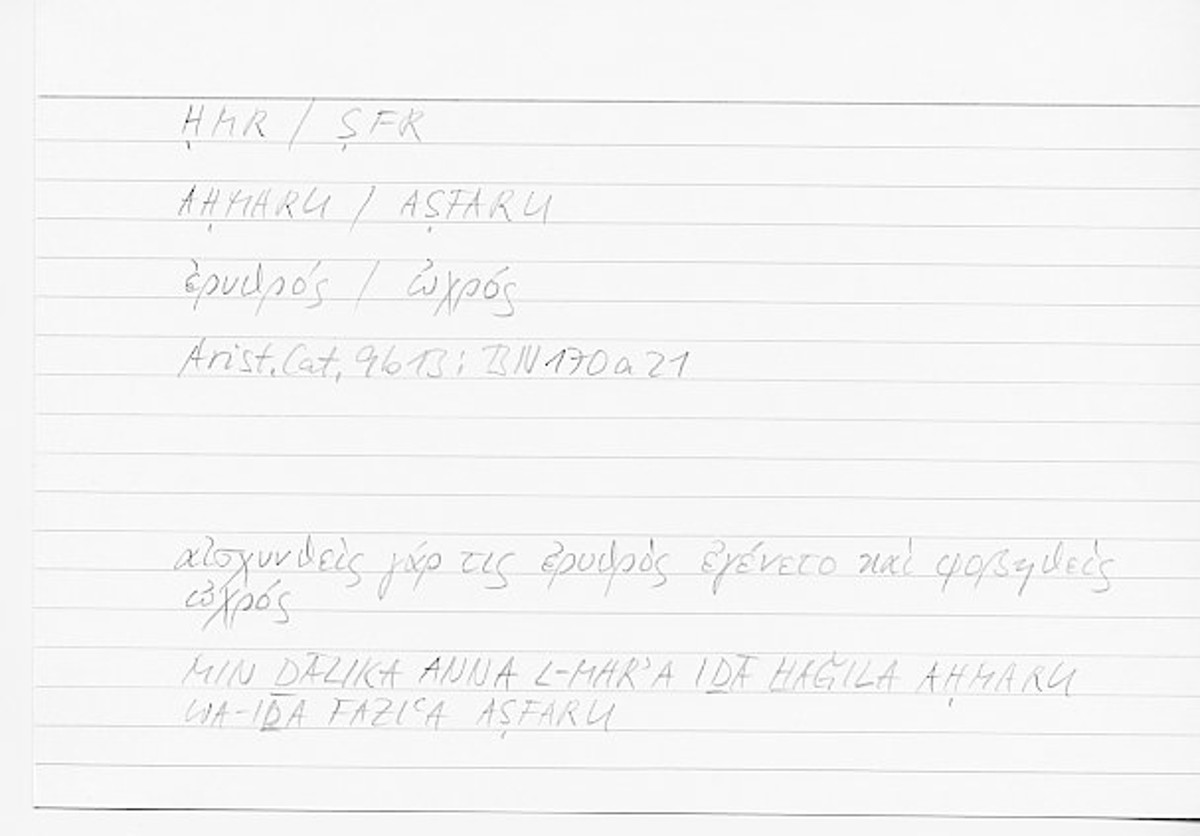 ḤMR / ṢFR
AḤMARU / AṢFARU
ἐρυθρός / ὠχρός
Arist. Cat. 9b13; BN 170a21
αἰσχυνθεὶς γάρ τις ἐρυθρὸς ἐγένετο καὶ φοβηθεὶς
ὠχρός
MIN ḎĀLIKA ANNA L-MARʾA IḎĀ ḪAǦILA AḤMARU
WA-IḎA FAZIʿA AṢFARU